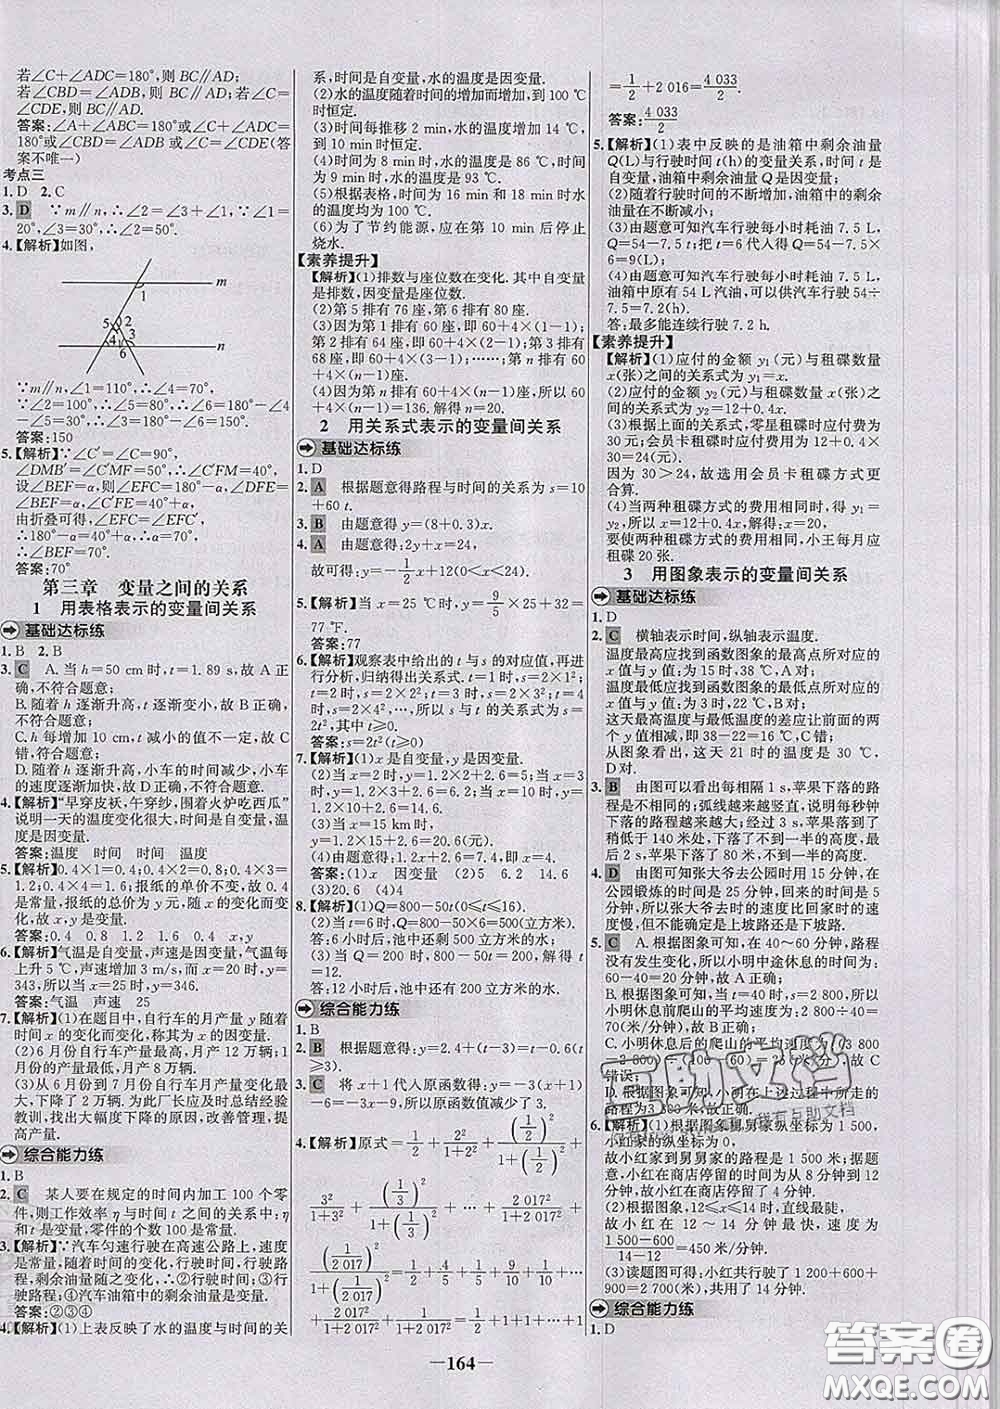 若∠C+∠ADC=180°,则 BC∥AD;
若∠CBD=∠ADB,则 BC∥AD;若∠C=
∠CDE,则 BC∥AD.
答案:∠A+∠ABC=180°或∠C+∠ADC=
180°或∠CBD=∠ADB 或∠C=∠CDE(答
案不唯一)
考点三
1. D 2. C
3. D ∵m∥n,∴∠2=∠3+∠1,∵∠1=
20°,∠3=30°,∴∠2=50°.
4.【解析】如图,
m
1
5 2
4 3
6
n
∵m∥n,∠1=110°,∴∠4=70°.
∵∠2=100°,∴∠5=80°,∴∠6=180°-∠4
-∠5=30°,∴∠3=180°-∠6=150°.
答案:150
5.【解析】∵∠C′=∠C=90°,
∠DMB′=∠C′MF=50°,∴∠C′FM=40°,
设∠BEF=α,则∠EFC=180°-α,∠DFE=
∠BEF=α,∠C′FE=40°+α,
由折叠可得,∠EFC=∠EFC′,
∴180°-α=40°+α,∴α=70°,
∴∠BEF=70°.
答案:70°
第三章 变量之间的关系
1 用表格表示的变量间关系
基础达标练
1. B 2. B
3. C A. 当 h=50 cm 时,t=1.89 s,故 A 正
确,不符合题意;
B. 随着 h 逐渐升高,t 逐渐变小,故 B 正
确,不符合题意;
C. h 每增加 10 cm,t 减小的值不一定,故 C
错,符合题意;
D. 随着 h 逐渐升高,小车的时间减少,小车
的速度逐渐加快,故 D 正确,不符合题意.
4.【解析】“早穿皮袄,午穿纱,围着火炉吃西瓜”
说明一天的温度变化很大,时间是自变量,温
度是因变量.
答案:温度 时间 时间 温度
5.【解析】0.4×1=0.4;0.4×2=0.8;0.4×3=
1.2;0.4×4=1.6;报纸的单价不变,故 0.4
是常量,报纸的总价为 y 元,随 x 的变化而变
化,故 x,y 是变量.
答案:0.4 0.8 1.2 1.6 0.4 x,y
6.【解析】气温是自变量,声速是因变量,气温每
上升 5 ℃,声速增加 3 m/s,而 x=20 时,y=
343,所以当 x=25 时,y=346.
答案:气温 声速 25
7.【解析】(1)在题目中,自行车的月产量 y 随着
时间 x 的变化而变化,称其为 x 的因变量.
(2)6 月份自行车产量最高,月产 12 万辆;1
月份的产量最低,月产 8 万辆.
(3)从 6 月份到 7 月份自行车产量下降最多,
下降了 2 万辆,为此厂长应及时总结经验
教训,找出大幅度下降的原因,改善管理,提
高产量.
综合能力练
1. B
2. C 某人要在规定的时间内加工 100 个零
件,则工作效率 η 与时间 t 之间的关系中:η
和 t 是变量,零件的个数 100 是常量.
3.【解析】∵汽车匀速行驶在高速公路上,速度
是常量,随着时间的变化,行驶时间,行驶路
程,剩余油量随之变化,∴②行驶时间;③行
驶路程;④汽车油箱中的剩余油量是变量.
答案:②③④
4.【解析】(1)上表反映了水的温度与时间的关
系,时间是自变量,水的温度是因变量.
(2)水的温度随着时间的增加而增加,到 100 ℃
时恒定.
(3)时间每推移 2 min,水的温度增加 14 ℃,
到 10 min 时恒定.
(4)时间为 8 min,水的温度是 86 ℃,时间
为 9 min,水的温度是 93 ℃.
(5)根据表格,时间为 16 min 和 18 min 时水
的温度均为 100 ℃.
(6)为了节约能源,应在第 10 min 后停止
烧水.
【素养提升】
【解析】(1)排数与座位数在变化.其中自变量
是排数,因变量是座位数.
(2)第 5 排有 76 座,第 6 排有 80 座.
(3)因为第 1 排有 60 座,即 60+4×(1-1);
第 2 排有 64 座,即 60+4×(2-1);第 3 排有
68 座,即 60+4×(3-1);……;第 n 排有
60+4×(n-1)座.
(4)因为第 n 排有 60+4×(n-1)座,所以
60+4×(n-1)=136.解得 n=20.
2 用关系式表示的变量间关系
基础达标练
1. D
2. A 根据题意得路程与时间的关系为 s=10
+60 t.
3. B 由题意得 y=(8+0.3)x.
4. A 由题意得:2y+x=24,
故可得:y=-1/2 x+12(0<x<24).
5.【解析】当 x=25 ℃时,y=9/5×25+32=
77 ℉.
答案:77
6.【解析】观察表中给出的 t 与 s 的对应值,再进
行分析,归纳得出关系式.t=1 时,s=2×1²;
t=2 时,s=2×2²;t=3 时,s=2×3²;t=4 时,
s=2×4²,…,所以 s 与 t 的关系式为 s=
2t²,其中 t≥0.
答案:s=2t²(t≥0)
7.【解析】(1)x 是自变量,y 是因变量.
(2)当 x=2 时,y=1.2×2+2.6=5,
当 x=3 时,y=1.2×3+2.6=6.2,
当 x=10 时,y=1.2×10+2.6=14.6.
(3)当 x=15 km 时,
y=1.2×15+2.6=20.6(元).
(4)由题意得:1.2x+2.6=7.4,解得:x=4.
答案:(1)x 因变量 (2)5 6.2 14.6
(3)20.6 (4)4
8.【解析】(1)Q=800-50t(0≤t≤16).
(2)当 t=6 时,Q=800-50×6=500(立方米).
答:6 小时后,池中还剩 500 立方米的水;
(3)当 Q=200 时,800-50t=200,解得 t
=12.
答:12 小时后,池中还有 200 立方米的水.
综合能力练
1. B
2. B 根据题意得:y=2.4+(t-3)=t-0.6(t≥
3).
3. C 将 x+1 代入原函数得:y=-3(x+1)
-6=-3x-9,所以原函数值减少了 3.
4.【解析】原式=1/2+2²/(1+2²)+(1/2)²/(1+(1/2)²)+
3²/(1+3²)+(1/3)²/(1+(1/3)²)+…+2 017²/(1+2 017²)+
(1/2 017)²/(1+(1/2 017)²)=1/2+4/5+1/5+9/10+1/10+…+
2 017²/(1+2 017²)+1/(1+2 017²)=1/2+1+1+…+1
=1/2+2 016=4 033/2.
答案:4 033/2
5.【解析】(1)表中反映的是油箱中剩余油量
Q(L)与行驶时间 t(h)的变量关系,时间 t 是
自变量,油箱中剩余油量 Q 是因变量;
(2)随着行驶时间的不断增加,油箱中的剩余
油量在不断减小;
(3)由题意可知汽车行驶每小时耗油 7.5 L,
Q=54-7.5t;把 t=6 代入得 Q=54-7.5×
6=9(L);
(4)由题意可知汽车行驶每小时耗油 7.5 L,
油箱中原有 54 L 汽油,可以供汽车行驶 54÷
7.5=7.2(h).
答:最多能连续行驶 7.2 h.
【素养提升】
【解析】(1)应付的金额 y₁(元)与租碟数量
x(张)之间的关系式为 y₁=x.
(2)应付的金额 y₂(元)与租碟数量 x(张)之
间的关系式为 y₂=12+0.4x.
(3)当租碟 30 张时,零星租碟时应付费用为
30 元;会员卡租碟时应付费用为 y₂=12+
0.4×30=24(元),
因为 30>24,故选用会员卡租碟方式更
合算.
(4)当两种租碟方式的费用相同时,得 y₁=
y₂,所以 x=12+0.4x,解得:x=20,
要使两种租碟方式的费用一样,小王每月应
租碟 20 张.
3 用图象表示的变量间关系
基础达标练
1. D
2. C 横轴表示时间,纵轴表示温度.
温度最高应找到函数图象的最高点所对应的
x 值与 y 值:为 15 时,38 ℃,A 对;
温度最低应找到函数图象的最低点所对应的
x 值与 y 值:为 3 时,22 ℃,B 对;
这天最高温度与最低温度的差应让前面的两
个 y 值相减,即 38-22=16 ℃,C 错;
从图象看出,这天 21 时的温度是 30 ℃,
D 对.
3. B 由图可以看出每相隔 1 s,苹果下落的
路程是不相同的;弧线越来越竖直,说明每秒钟
下落的路程越来越大;经过 3 s,苹果下落到了
稍低于 140 米处,下落了不到一半的高度.
最后 2 s,苹果下落了 80 米,不到一半的高度.
4. D 由图可知张大爷去公园时用 15 分钟,在
公园锻炼的时间是 25 分钟,回家的时间是 5
分钟,所以张大爷去时的速度比回家时的速度
慢,但不能确定是上坡路还是下坡路.
5. C A. 根据图象可知,在 40~60 分钟,路程
没有发生变化,所以小明中途休息的时间为:
60-40=20 分钟,故 A 正确;
B. 根据图象可知,当 t=40 时,s=2 800,所以
小明休息前爬山的平均速度为:2 800÷40=
70(米/分钟),故 B 正确;
C. 小明休息后的爬山的平均速度为:(3 800
-2 800)÷(100-60)=25(米/分),故 C
错误;
D. 根据图象可知小明在上述过程中所走的
路程为 3 800 米,故 D 正确.
6.【解析】(1)根据图象舅舅家纵坐标为 1 500,
小红家的纵坐标为 0,
故小红家到舅舅家的路程是 1 500 米;据题
意,小红在商店停留的时间为从 8 分到 12 分,
故小红在商店停留了 4 分钟.
(2)根据图象,12≤x≤14 时,直线最陡,
故小红在 12~14 分钟最快,速度为
(1 500-600)/(14-12)=450(米/分钟).
(3)读题图可得:小红共行驶了 1 200+600+
900=2 700(米),共用了 14 分钟.
综合能力练
1. D
—164—
互助文档
答案圈
MXQE.COM